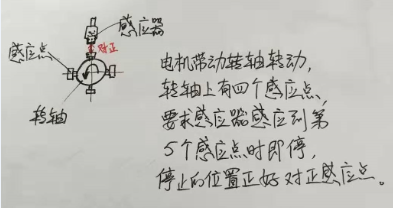 感应器
对正
感应点
转轴
电机带动转轴转动,
转轴上有四个感应点,
要求感应器感应到第
5个感应点时即停,
停止的位置正好对正感应点。